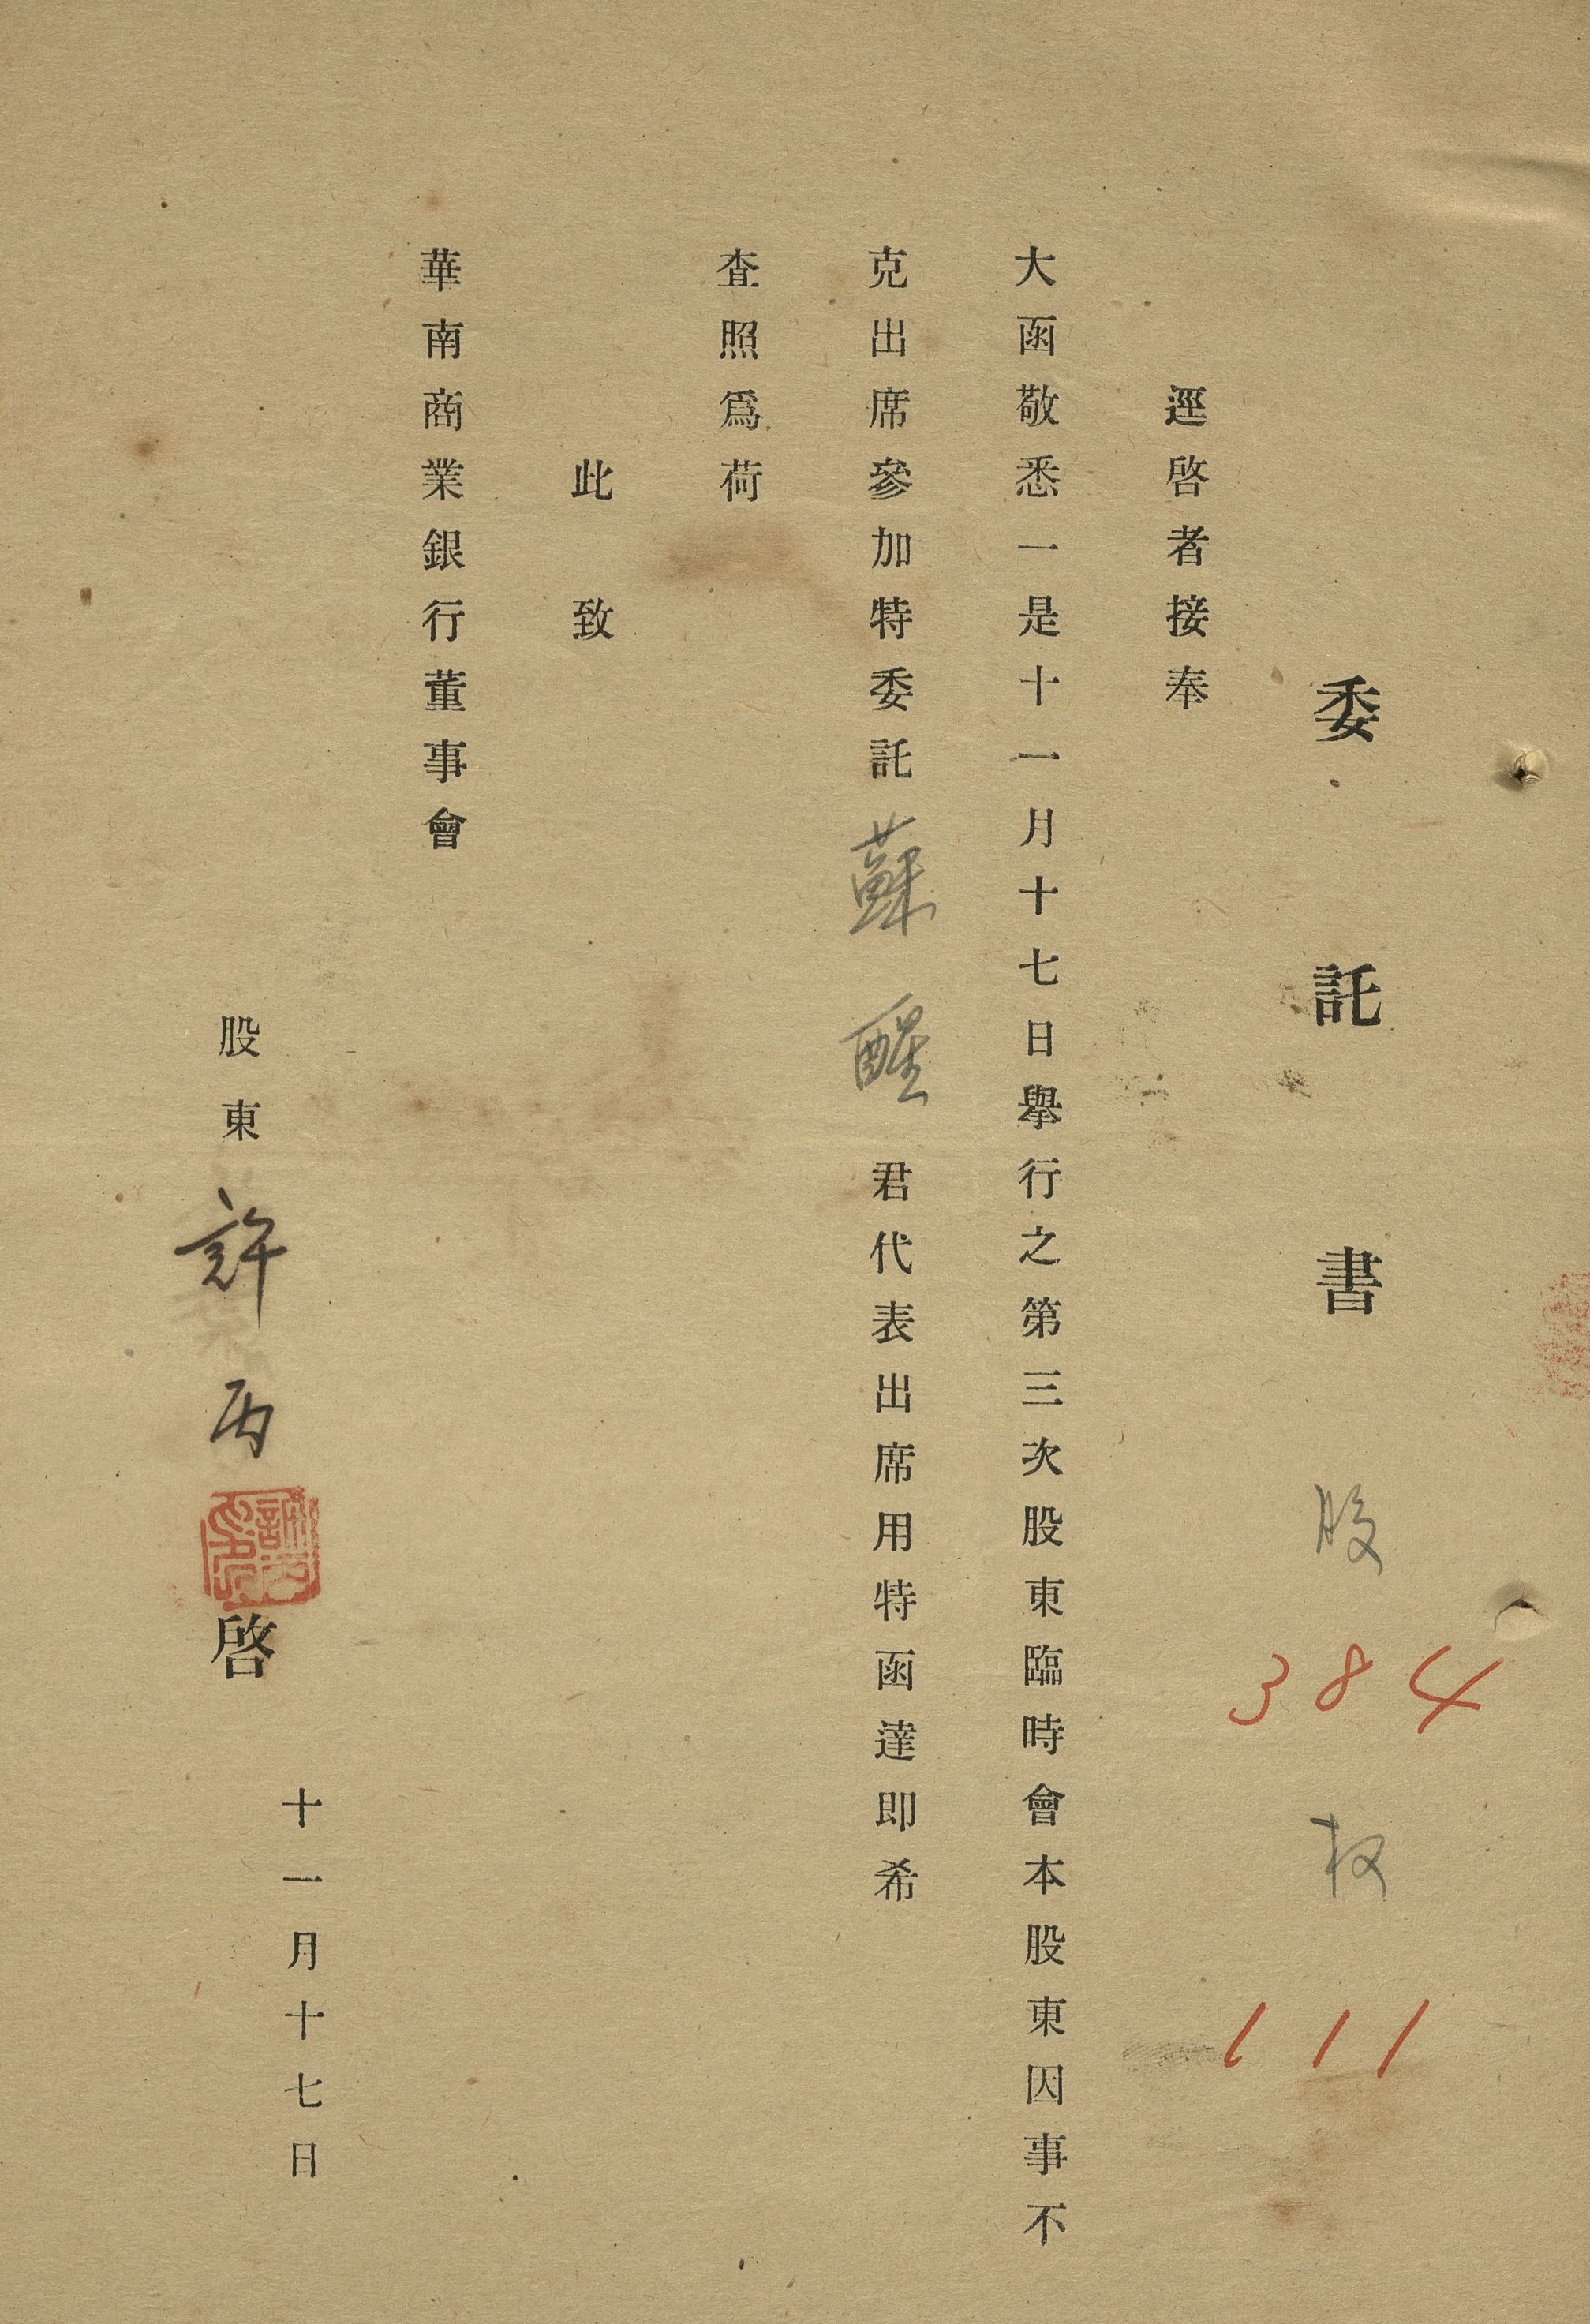 委託書 股 384 权 111
逕啓者接奉
大函敬悉一是十一月十七日舉行之第三次股東臨時會本股東因事不
克出席參加特委託蘇醒君代表出席用特函達即希
查照爲荷
此致
華南商業銀行董事會
十一月十七日
股東許丙啓